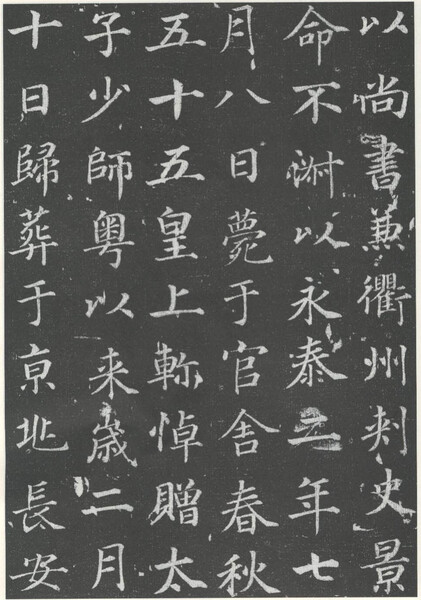 以尚書兼衢州刺史景
命不淑以永泰二年七
月八日薨于官舍春秋
五十五皇上軫悼贈太
子少師粵以来歲二月
十日歸葬于京兆長安